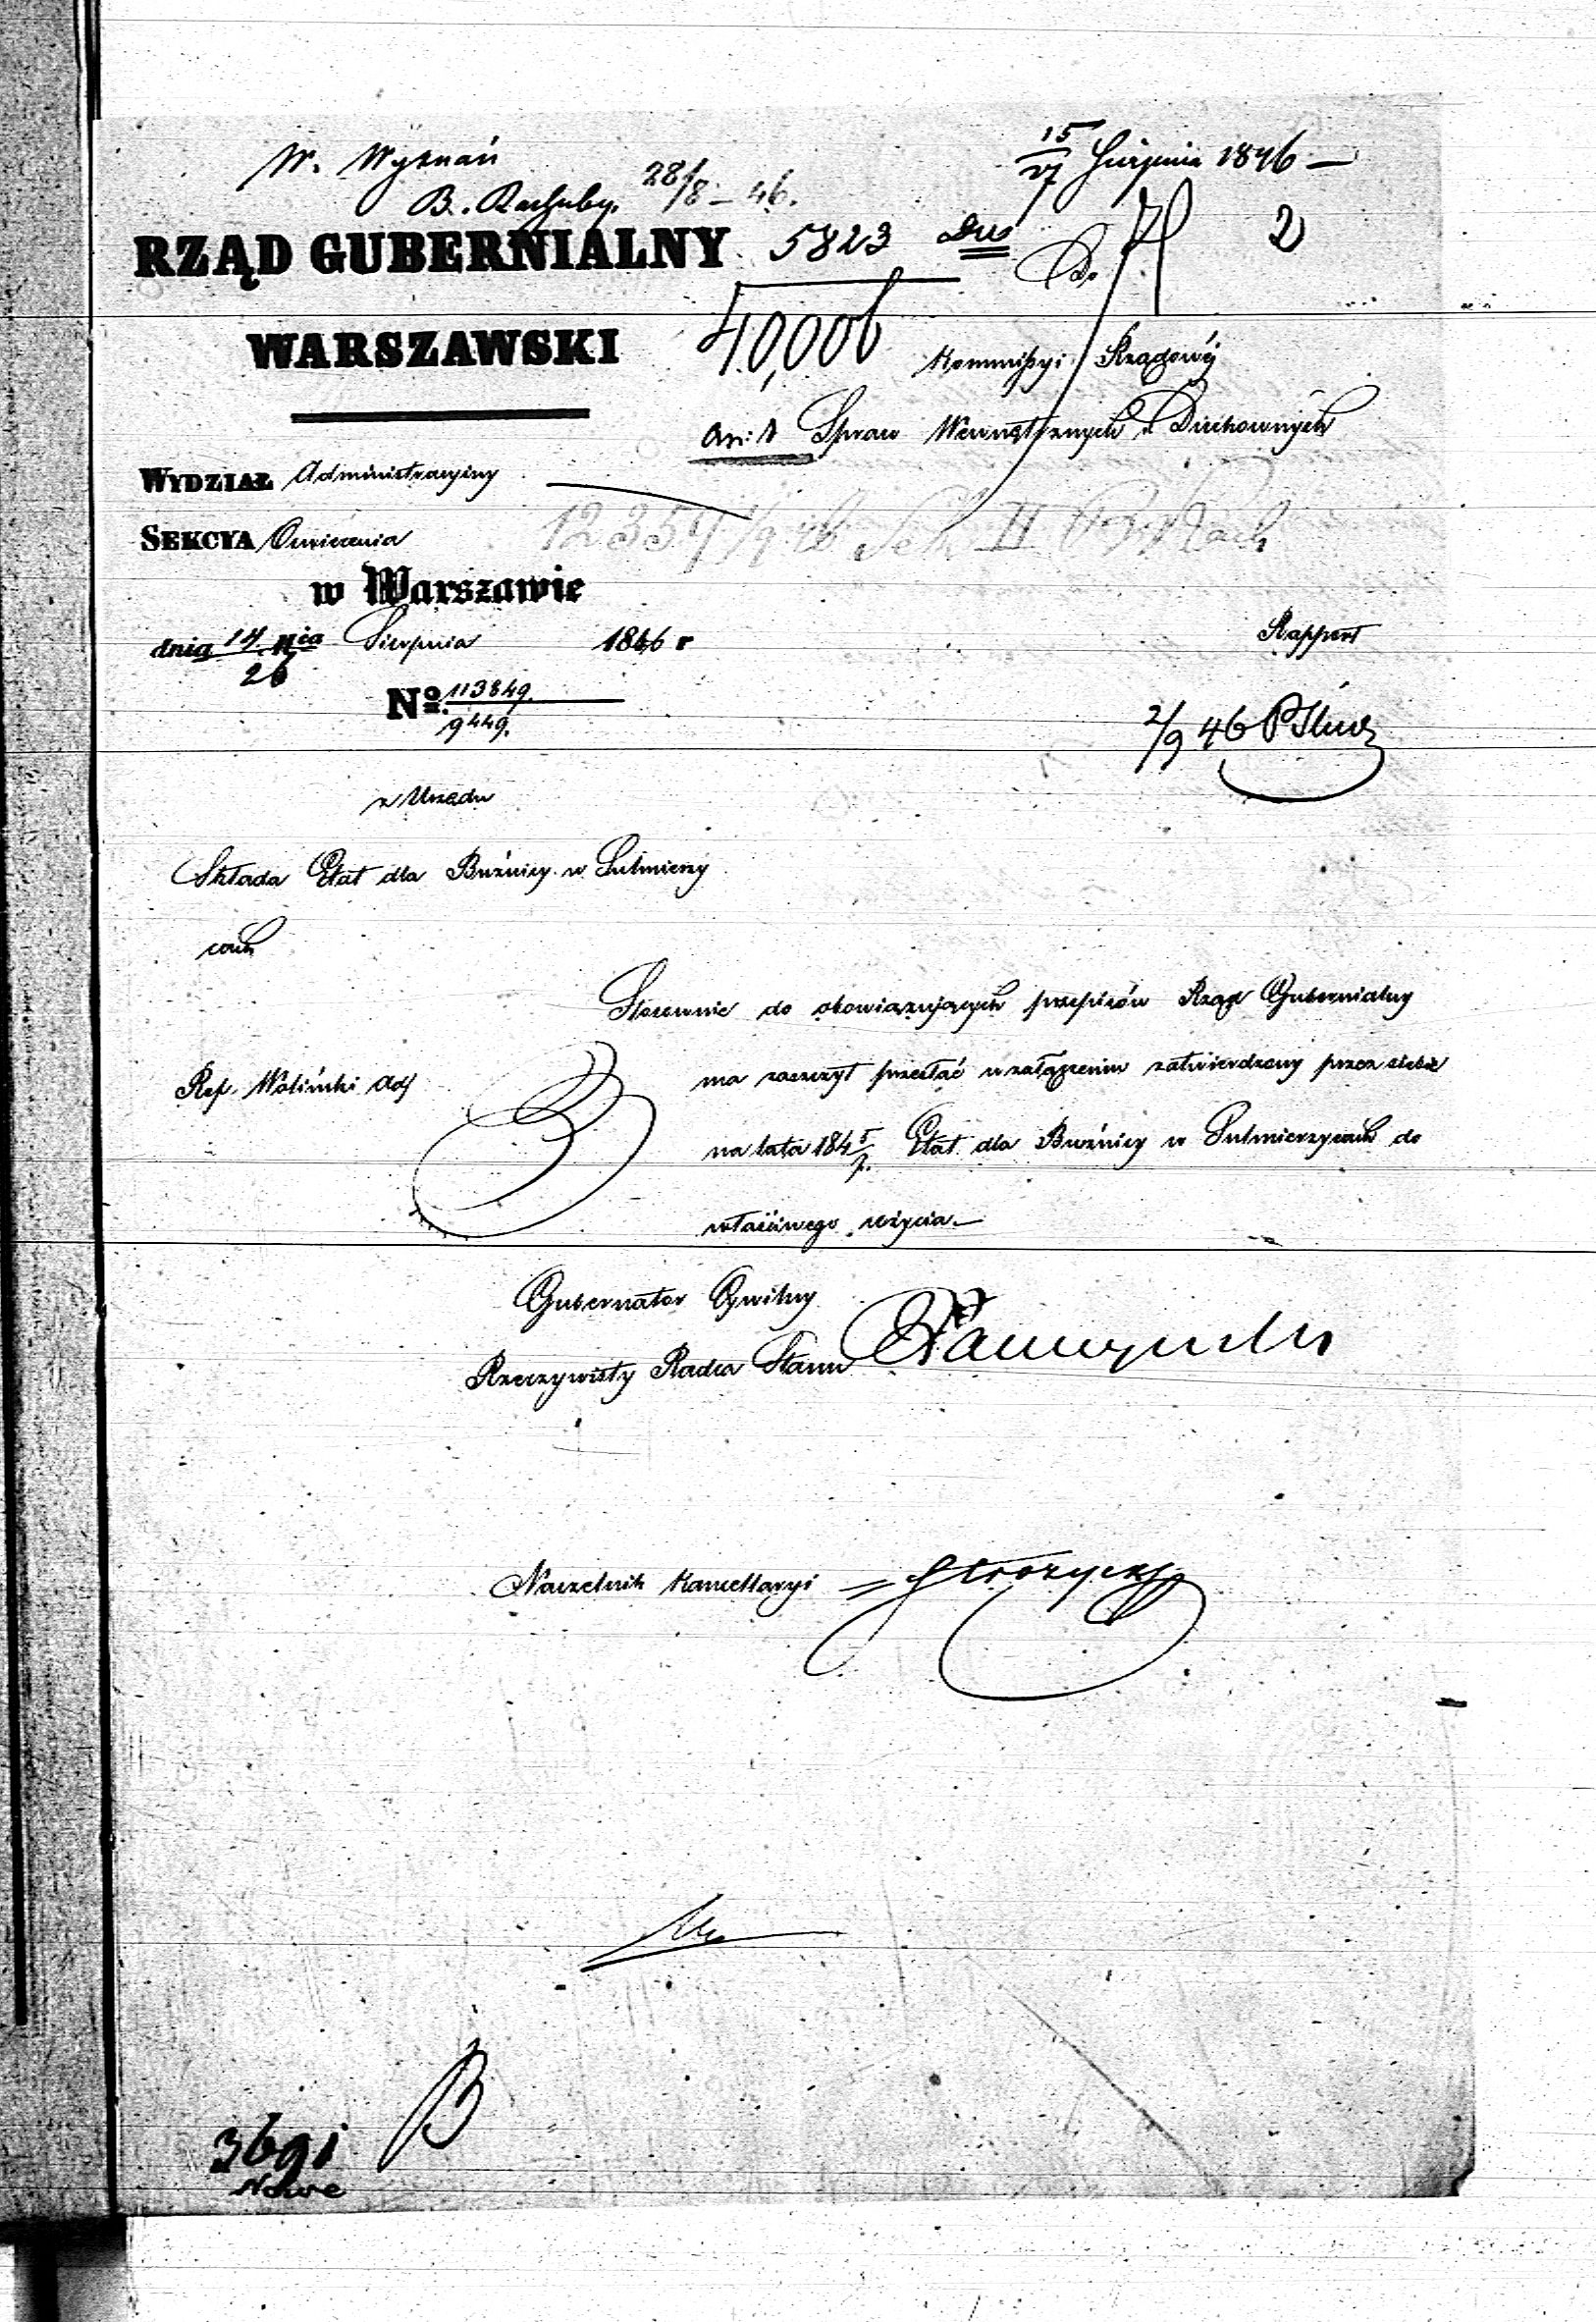 15/27 Sierpnia 1846 —
W. Wyznań
B. Rachuby. 28/8 – 46.
RZĄD GUBERNIALNY 5823 2
WARSZAWSKI 40,006
Kommissyi Rządowéy
Spraw Wewnętrznych i Duchownych
WYDZIAŁ Administracyiny
SEKCYA Oswiecenia
12354 1/9 46 II
w Warszawie
dnia 14/26 Sierpnia 1846 r
Rapport
No. 113849./9449.
2/9 46
z Urzędu
Składa Etat dla Bużnicy w Sulmierzy
cach
Stosownie do obowiązujących przepisów Rząd Gubernialny
Ref. Woliński Adj
ma zaszczyt przesłać w załączeniu zatwierdzony przez siebie
na lata 184 5/7. Etat dla Bużnicy w Sulmierzycach do
właściwego użycia —
Gubernator Cywilny
Rzeczywisty Radca Stanu
Naczelnik Kancellaryi
B
Nowe